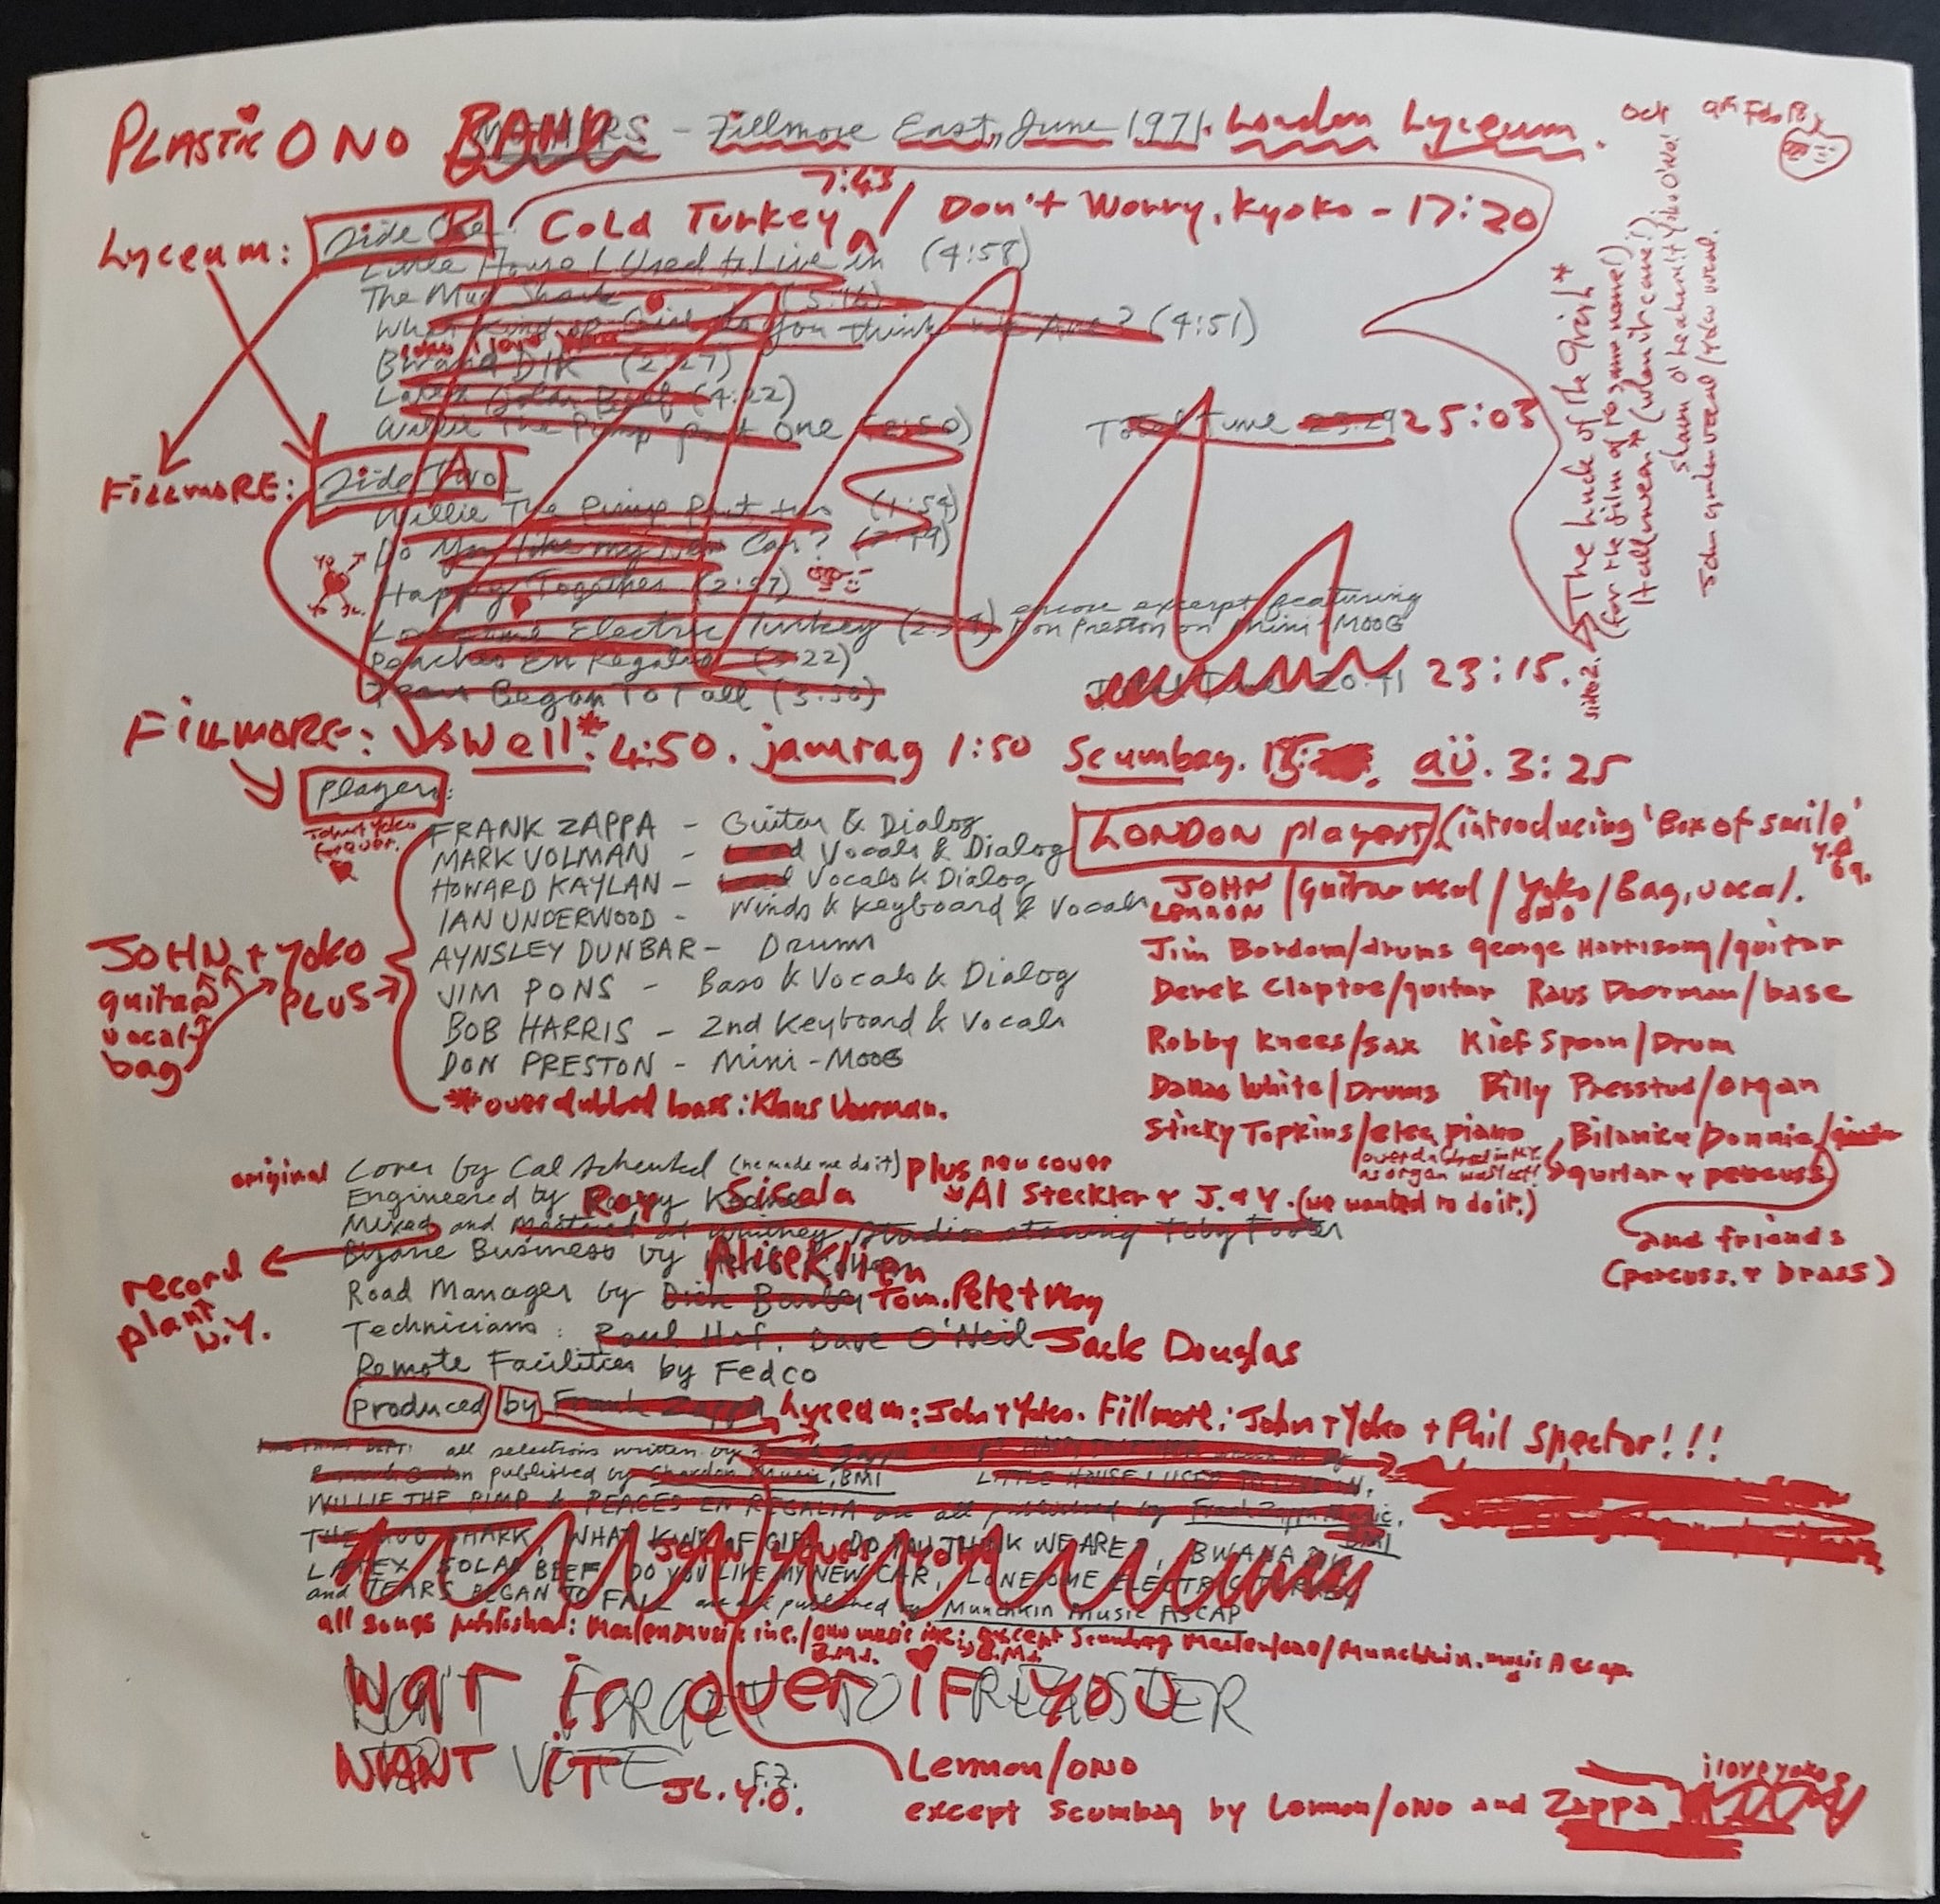 PLASTIC ONO BAND - Fillmore East, June 1971. London Lyceum.
Lyceum: Side One Cold Turkey 7:43 / Don't Worry, Kyoko - 17:20
Little House I Used to Live in (4:58)
The Mud Shark
What Kind of Girl do You think we Are? (4:51)
Bwana Dik (2:27)
Latex Solar Beef (4:22)
Willie The Pimp Part One (2:50)
Total time 23:29 25:03
FILLMORE: Side Two
Willie The Pimp Part two (1:54)
Do You like my New Car?
Happy Together (2:57)
Lonesome Electric Turkey encore excerpt featuring
Don Preston on Mini-MOOG
Peaches En Regalia (3:22)
Tears Began To Fall (3:30)
23:15.
FILLMORE: Well* 4:50. jamrag 1:50 Scumbag. aü. 3:25
players:
FRANK ZAPPA - Guitar & Dialog
MARK VOLMAN - Lead Vocals & Dialog
HOWARD KAYLAN - Lead Vocals & Dialog
IAN UNDERWOOD - Winds & Keyboard & Vocals
AYNSLEY DUNBAR - Drums
JIM PONS - Bass & Vocals & Dialog
BOB HARRIS - 2nd Keyboard & Vocals
DON PRESTON - Mini-MOOG
* overdubbed bass: Klaus Voorman.
JOHN + Yoko
guitar
vocal
bag
PLUS
LONDON players (introducing 'Box of smile' Y.O 69.
JOHN LENNON / guitar vocal / Yoko ONO / Bag, vocal.
Jim Bordom/drums george Harrisong/guitar
Derek Claptoe/guitar Raus Doorman/base
Robby Knees/sax Kief Spoon/Drum
Dallas White/Drums Billy Presstud/organ
Sticky Topkins/elec piano, Bilanie & Donnie/
guitar & percuss
and friends
(percuss. & brass)
original Cover by Cal Schenkel (he made me do it) plus new cover
Al Steckler & J. & Y. (we wanted to do it.)
Engineered by Roy Cicala
Mixed and Mastered at Whitney Studios starring Toby Foster
record
plant
N.Y.
Bizarre Business by Alice Klien
Road Manager by Dick Barber Tom. Pete + May
Technicians: Paul Hof, Dave O'Neil Jack Douglas
Remote Facilities by Fedco
produced by Frank Zappa Lyceum: John + Yoko. Fillmore: John + Yoko + Phil Spector!!!
all selections written by
published by Chardon Music, BMI LITTLE HOUSE I USED TO LIVE IN,
WILLIE THE PIMP & PEACES EN REGALIA are all published by Frank Zappa Music, BMI
THE MUD SHARK, WHAT KIND OF GIRL DO YOU THINK WE ARE?, BWANA DIK
LATEX SOLAR BEEF, DO YOU LIKE MY NEW CAR, LONESOME ELECTRIC TURKEY
and TEARS BEGAN TO FALL are all published by Munchkin Music ASCAP
JOHN LOVES YOKO
all songs published: Maclen music inc./ono music inc; except Scumbag Maclen/ono/Munchkin.music Ascap.
B.M.I. B.M.I.
WAR is over iF YOU
WANT iT JL. Y.O.
DON'T FORGET TO REGISTER
TO VOTE F.Z.
Lennon/ONO
except Scumbag by Lennon/ONO and Zappa
i love yoko
The luck of the Irish*